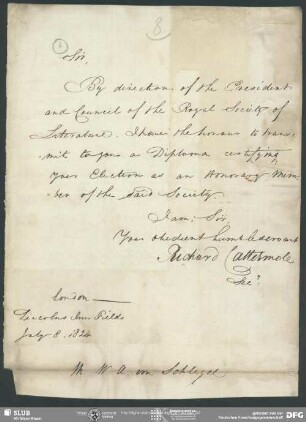 8
Sir,
By direction of the President
and Council of the Royal Society of
Literature, I have the honour to trans-
mit to you a Diploma certifying
your Election as an Honorary Mem-
ber of the said Society.
I am, Sir,
Your obedient humble servant
Richard Cattermole
Secy.
London —
Lincolns Inn Fields
July 8. 1824
W. A. von Schlegel
SLUB
DFG